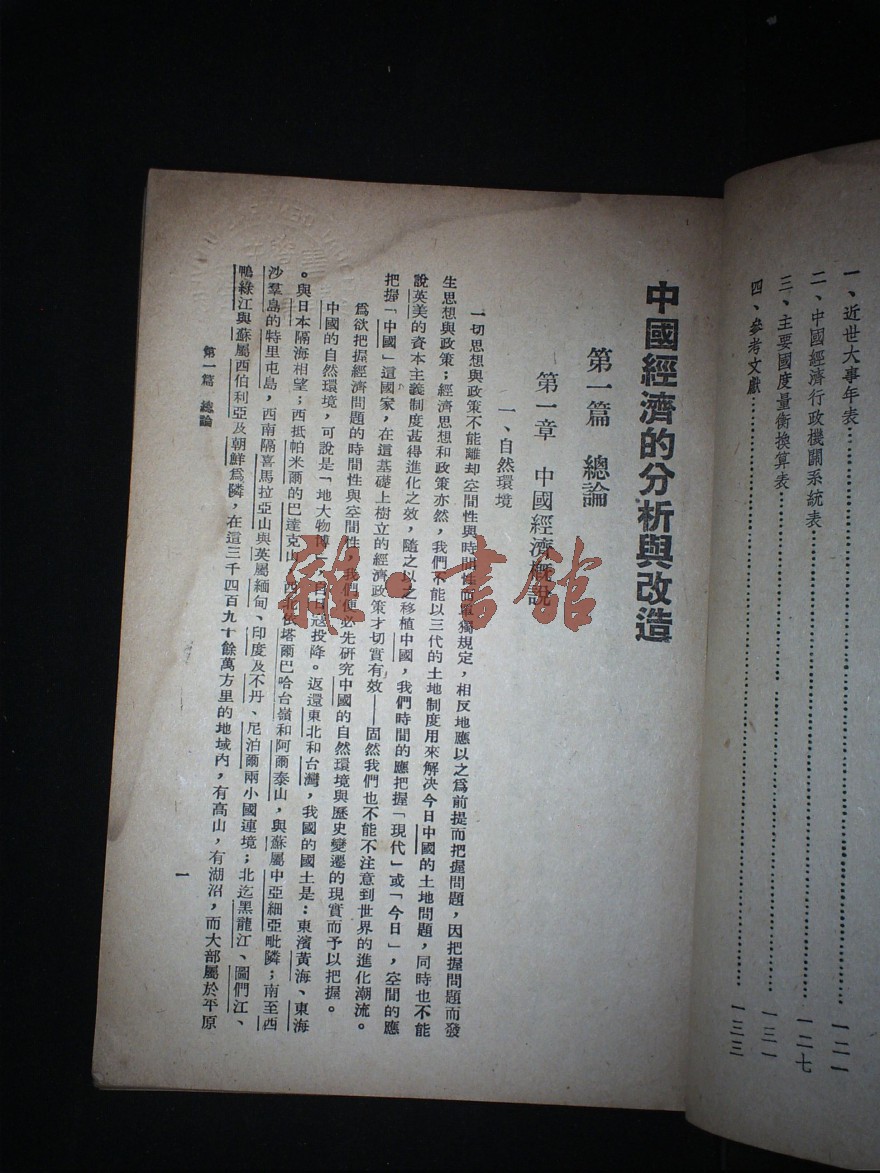 一、近世大事年表……一二一
二、中國經濟行政機關系統表……一二七
三、主要國度量衡換算表……一三一
四、參考文獻……一三三
中國經濟的分析與改造
第一篇 總論
第一章 中國經濟概說
一、自然環境
一切思想與政策不能離却空間性與時間性而單獨規定，相反地應以之爲前提而把握問題，因把握問題而發
生思想與政策；經濟思想和政策亦然，我們不能以三代的土地制度用來解決今日中國的土地問題，同時也不能
說英美的資本主義制度甚得進化之效，隨之以之移植中國，我們時間的應把握「現代」或「今日」，空間的應
把握「中國」這國家，在這基礎上樹立的經濟政策才切實有效——固然我們也不能不注意到世界的進化潮流。
爲欲把握經濟問題的時間性與空間性，我們便必先研究中國的自然環境與歷史變遷的現實而予以把握。
中國的自然環境，可說是「地大物博」，自日寇投降。返還東北和台灣，我國的國土是：東濱黃海、東海
。與日本隔海相望；西抵帕米爾的巴達克山，西北依塔爾巴哈台嶺和阿爾泰山，與蘇屬中亞細亞毗隣；南至西
沙羣島的特里屯島，西南隔喜馬拉亞山與英屬緬甸、印度及不丹、尼泊爾兩小國連境；北迄黑龍江、圖們江、
鴨綠江與蘇屬西伯利亞及朝鮮爲隣，在這三千四百九十餘萬方里的地域內，有高山，有湖沼，而大部屬於平原
第一篇 總論
一
雜·書館